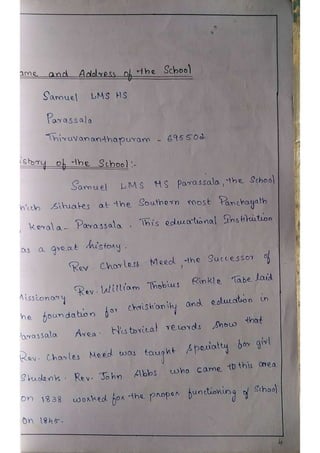 ame and Address of the School
Samuel LMS HS
Parassala
Thiruvananthapuram - 695502
istory of the School :-
Samuel LMS HS Parassala, the School
hich Situates at the Southern most Panchayath
, Kerala - Parassala. This educational Institution
as a great history.
Rev Charless Meed, the Successor of
Missionary Rev. William Thobius Rinkle Tabe laid
he foundation for christianity and education in
Parassala Area. Historical records show that
Rev. Charles Meed was taught Specialty for girl
Students. Rev. John Abbs who came to this area
on 1838 worked for the proper functioning of School
On 1845.
4